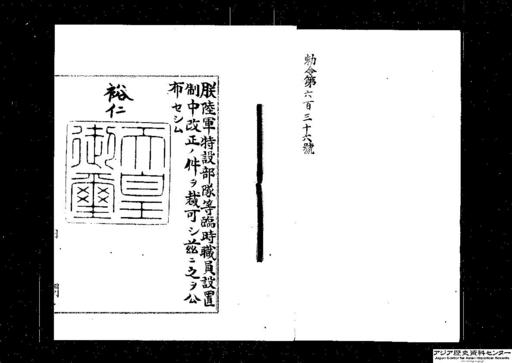 勅令第六百三十六號
朕陸軍特設部隊等臨時職員設置
制中改正ノ件ヲ裁可シ茲ニ之ヲ公
布セシム
裕仁
天皇
御璽
アジア歴史資料センター
Japan Center for Asian Historical Records